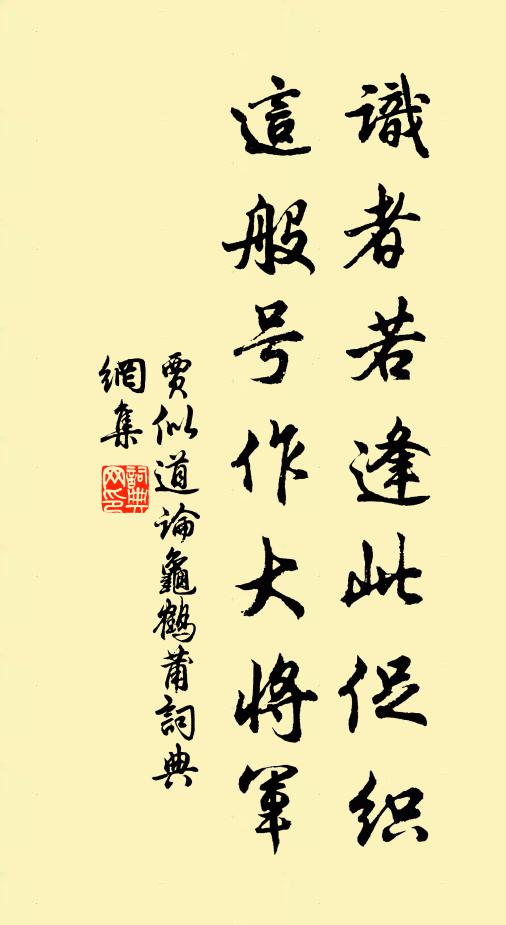 識者若逢此促织
這般号作大将軍
賈似道論龜鶴莆詞典
網集
詞典
网印